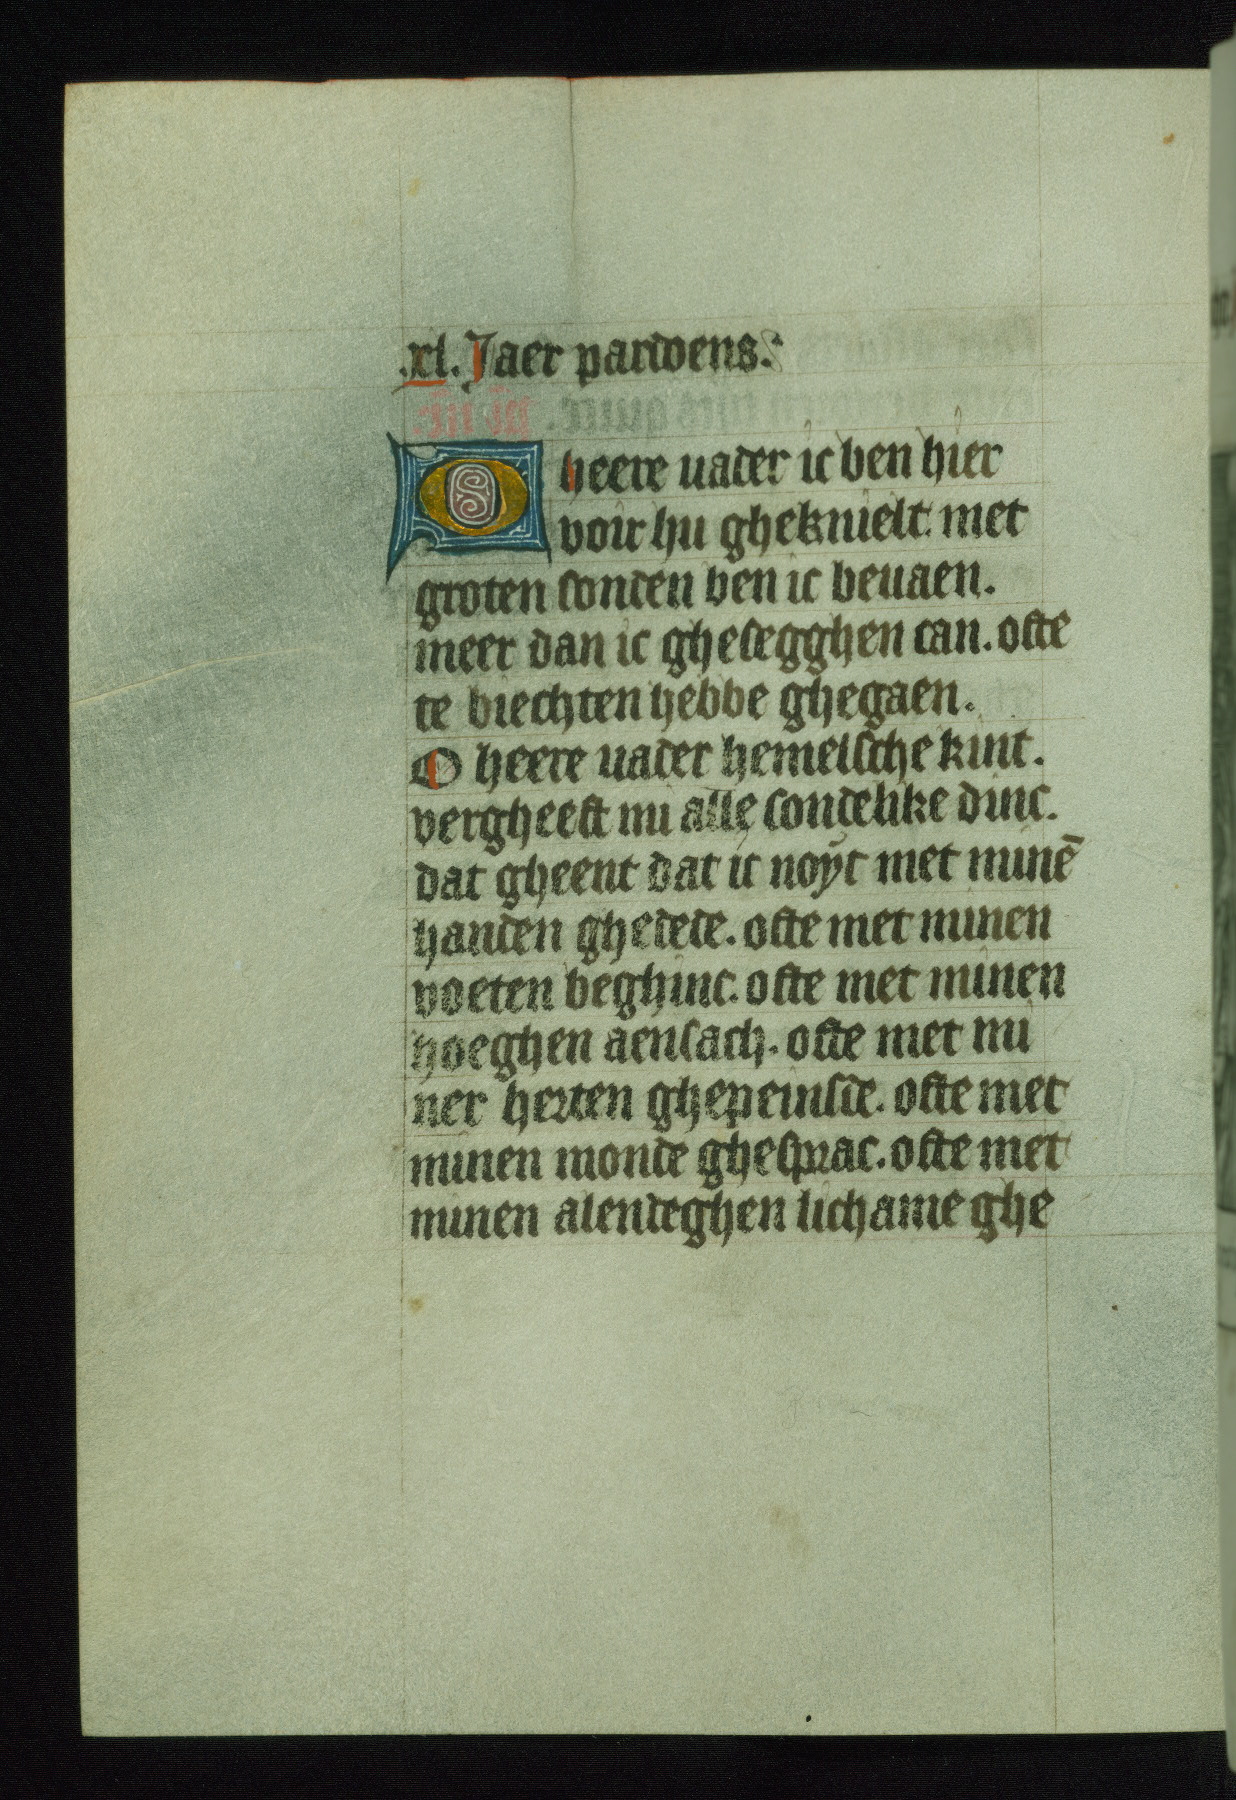 .xl. Jaer pardoens.
O heere uader ic ben hier
voir hu gheknielt. met
groten sonden ben ic beuaen.
meer dan ic ghesegghen can. ofte
te biechten hebbe ghegaen.
O heere uader hemelsche kint.
vergheeft mi alle sondelike dinc.
dat gheent dat ic noyt met minē
handen ghedede. ofte met minen
voeten beghinc. ofte met minen
hoeghen aensach. ofte met mi
ner herten ghepeinsde. ofte met
minen monde ghesprac. ofte met
minen alendeghen lichame ghe